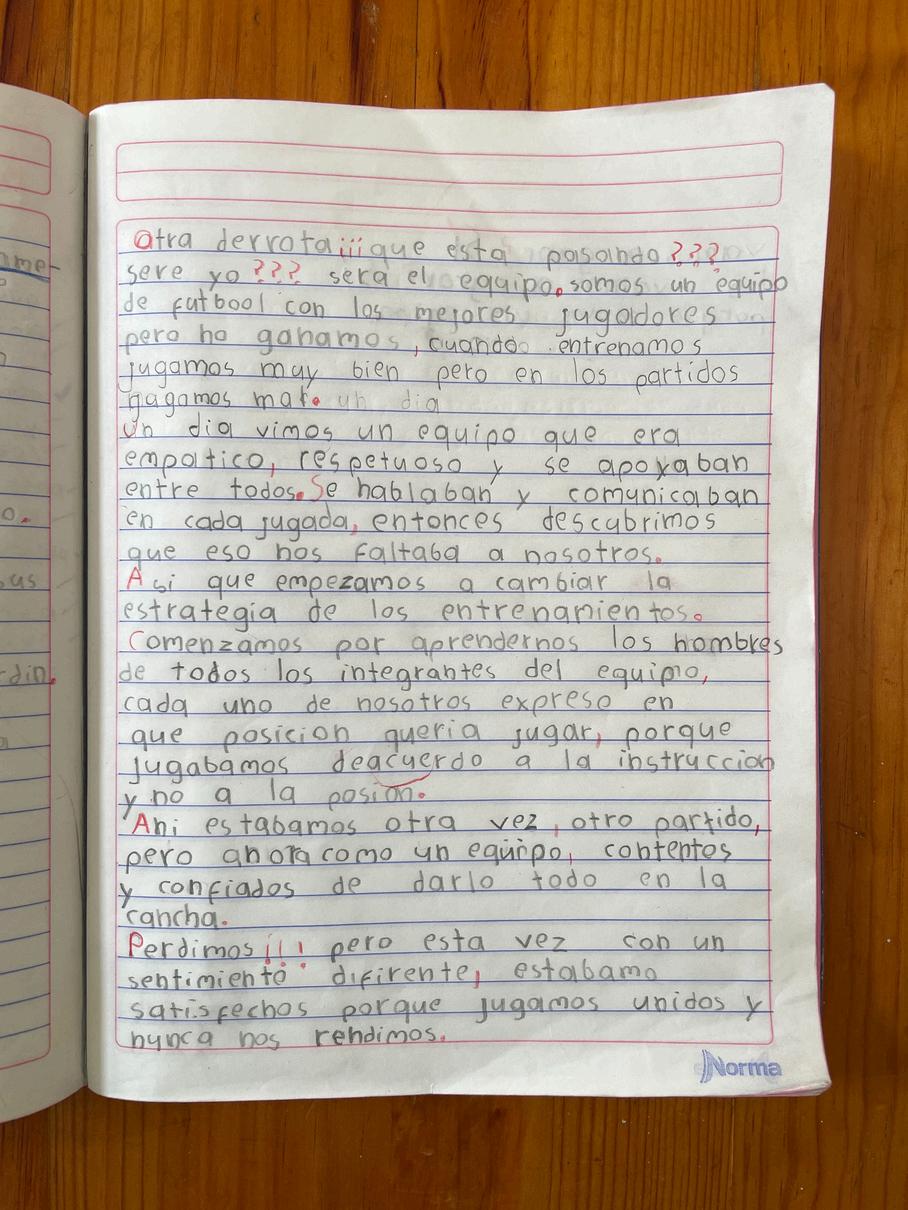 Otra derrota¡¡¡que esta pasando ???
sere yo ??? sera el equipo.somos un equipo
de futbool con los mejores jugadores
pero no ganamos, cuando entrenamos
jugamos muy bien pero en los partidos
jugamos mal. un dia
Un dia vimos un equipo que era
empatico, respetuoso y se apoyaban
entre todos. Se hablaban y comunicaban
en cada jugada, entonces descubrimos
que eso nos faltaba a nosotros.
Asi que empezamos a cambiar la
estrategia de los entrenamientos.
Comenzamos por aprendernos los nombres
de todos los integrantes del equipo,
cada uno de nosotros expreso en
que posicion queria jugar, porque
jugabamos deacuerdo a la instruccion
y no a la posion.
Ahi estabamos otra vez, otro partido,
pero ahora como un equipo, contentos
y confiados de darlo todo en la
cancha.
Perdimos!!! pero esta vez con un
sentimiento difirente, estabamo
satisfechos porque jugamos unidos y
nunca nos rendimos.
Norma